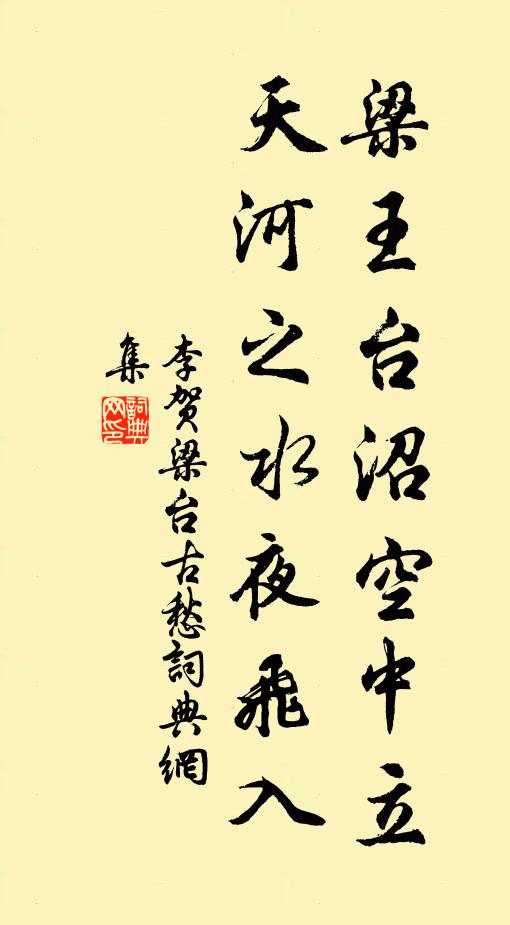 梁王台沼空中立
天河之水夜飛入
李贺梁台古愁詞典網
集
詞典網印